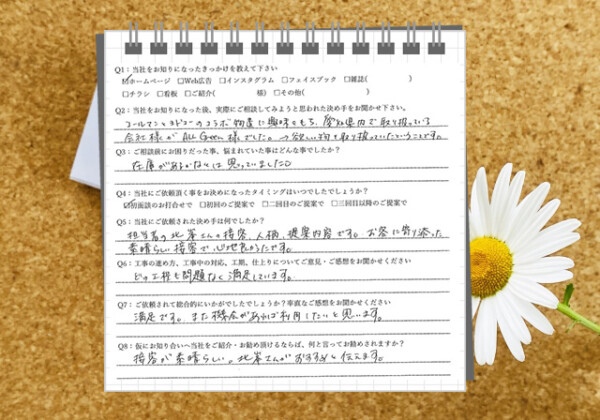 Q1：当社をお知りになったきっかけを教えて下さい
☑ホームページ □Web広告 □インスタグラム □フェイスブック □雑誌( )
□チラシ □看板 □ご紹介( 様) □その他( )
Q2：当社をお知りになった後、実際にご相談してみようと思われた決め手をお聞かせ下さい。
コールマンと のコラボ物置に興味をもち、愛知県内で取り扱っている
会社様が ALL Green 様でした。→欲しい物を取り扱っていたということです。
Q3：ご相談前にお困りだった事、悩まれていた事はどんな事でしたか？
在庫があるかなとは思っていました
Q4：当社にご依頼頂く事をお決めになったタイミングはいつでしたでしょうか？
☑初面談のお打合せで □初回のご提案で □二回目のご提案で □三回目以降のご提案で
Q5：当社に依頼された決め手は何でしたか？
担当者の北峯さんの接客、人柄、提案内容です。お客に寄り添った
素晴らしい接客で心地良かったです。
Q6：工事の進め方、工事中の対応、工期、仕上りについてご意見・ご感想をお聞かせください
どの工程も問題なく満足しています。
Q7：ご依頼されて総合的にいかがでしたでしょうか？率直なご感想をお聞かせください
満足です。また機会があれば利用したいと思います。
Q8：仮にお知り合いへ当社をご紹介・お勧め頂けるならば、何と言ってお勧めされますか？
接客が素晴らしい。北峯さんがおすすめと伝えます。